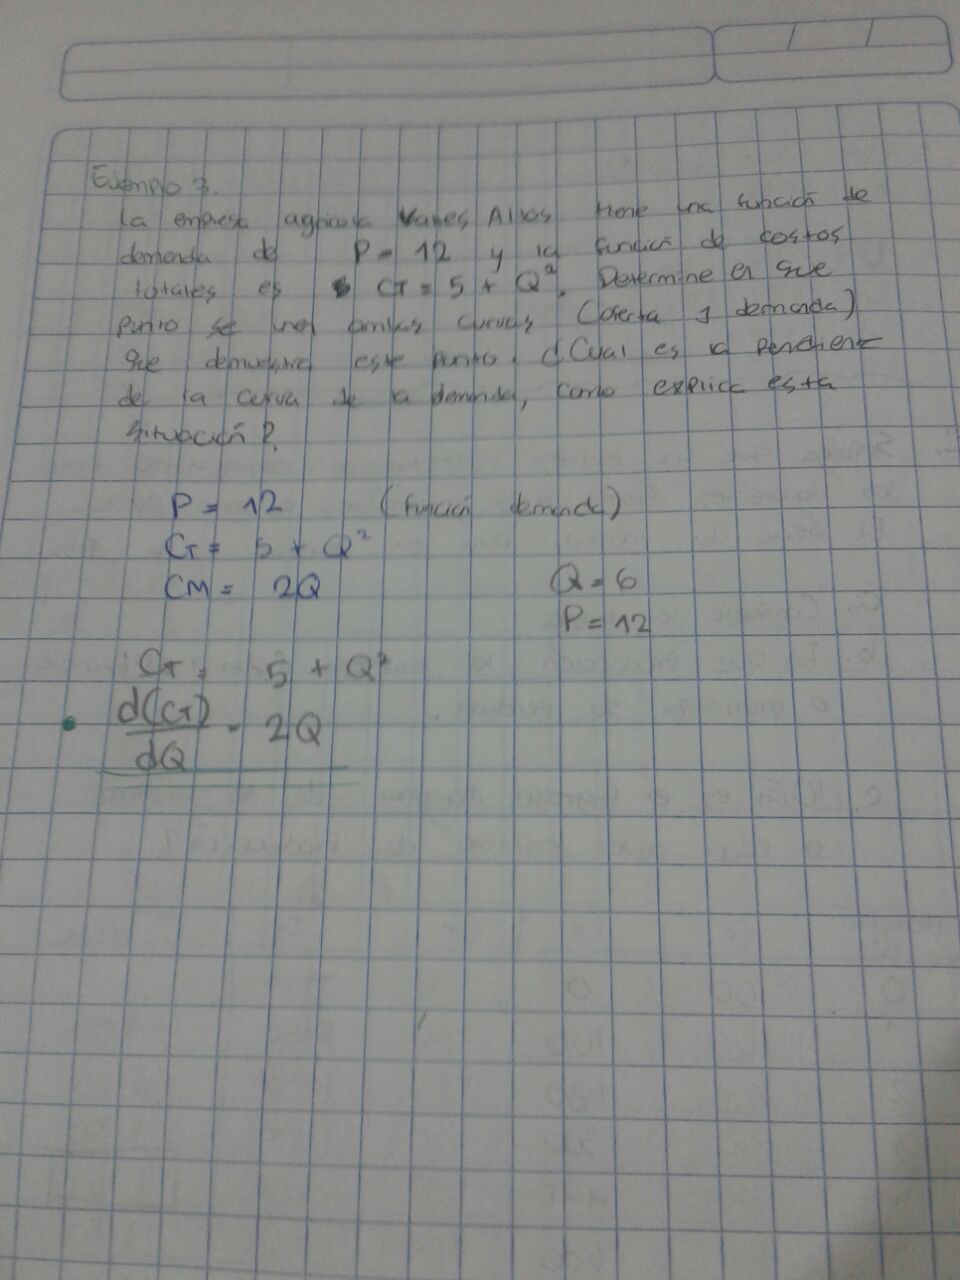 Ejemplo 3.
La empresa agricola Valles Altos tiene una función de
demanda de P = 12 y la función de costos
totales es CT = 5 + Q². Determine en que
punto se unen ambas curvas (oferta y demanda)
que demuestra este punto. ¿Cual es la pendiente
de la curva de la demanda, como explica esta
situación?
P = 12 (función demanda)
CT = 5 + Q²
CM = 2Q Q = 6
P = 12
CT = 5 + Q²
d(CT)
dQ = 2Q